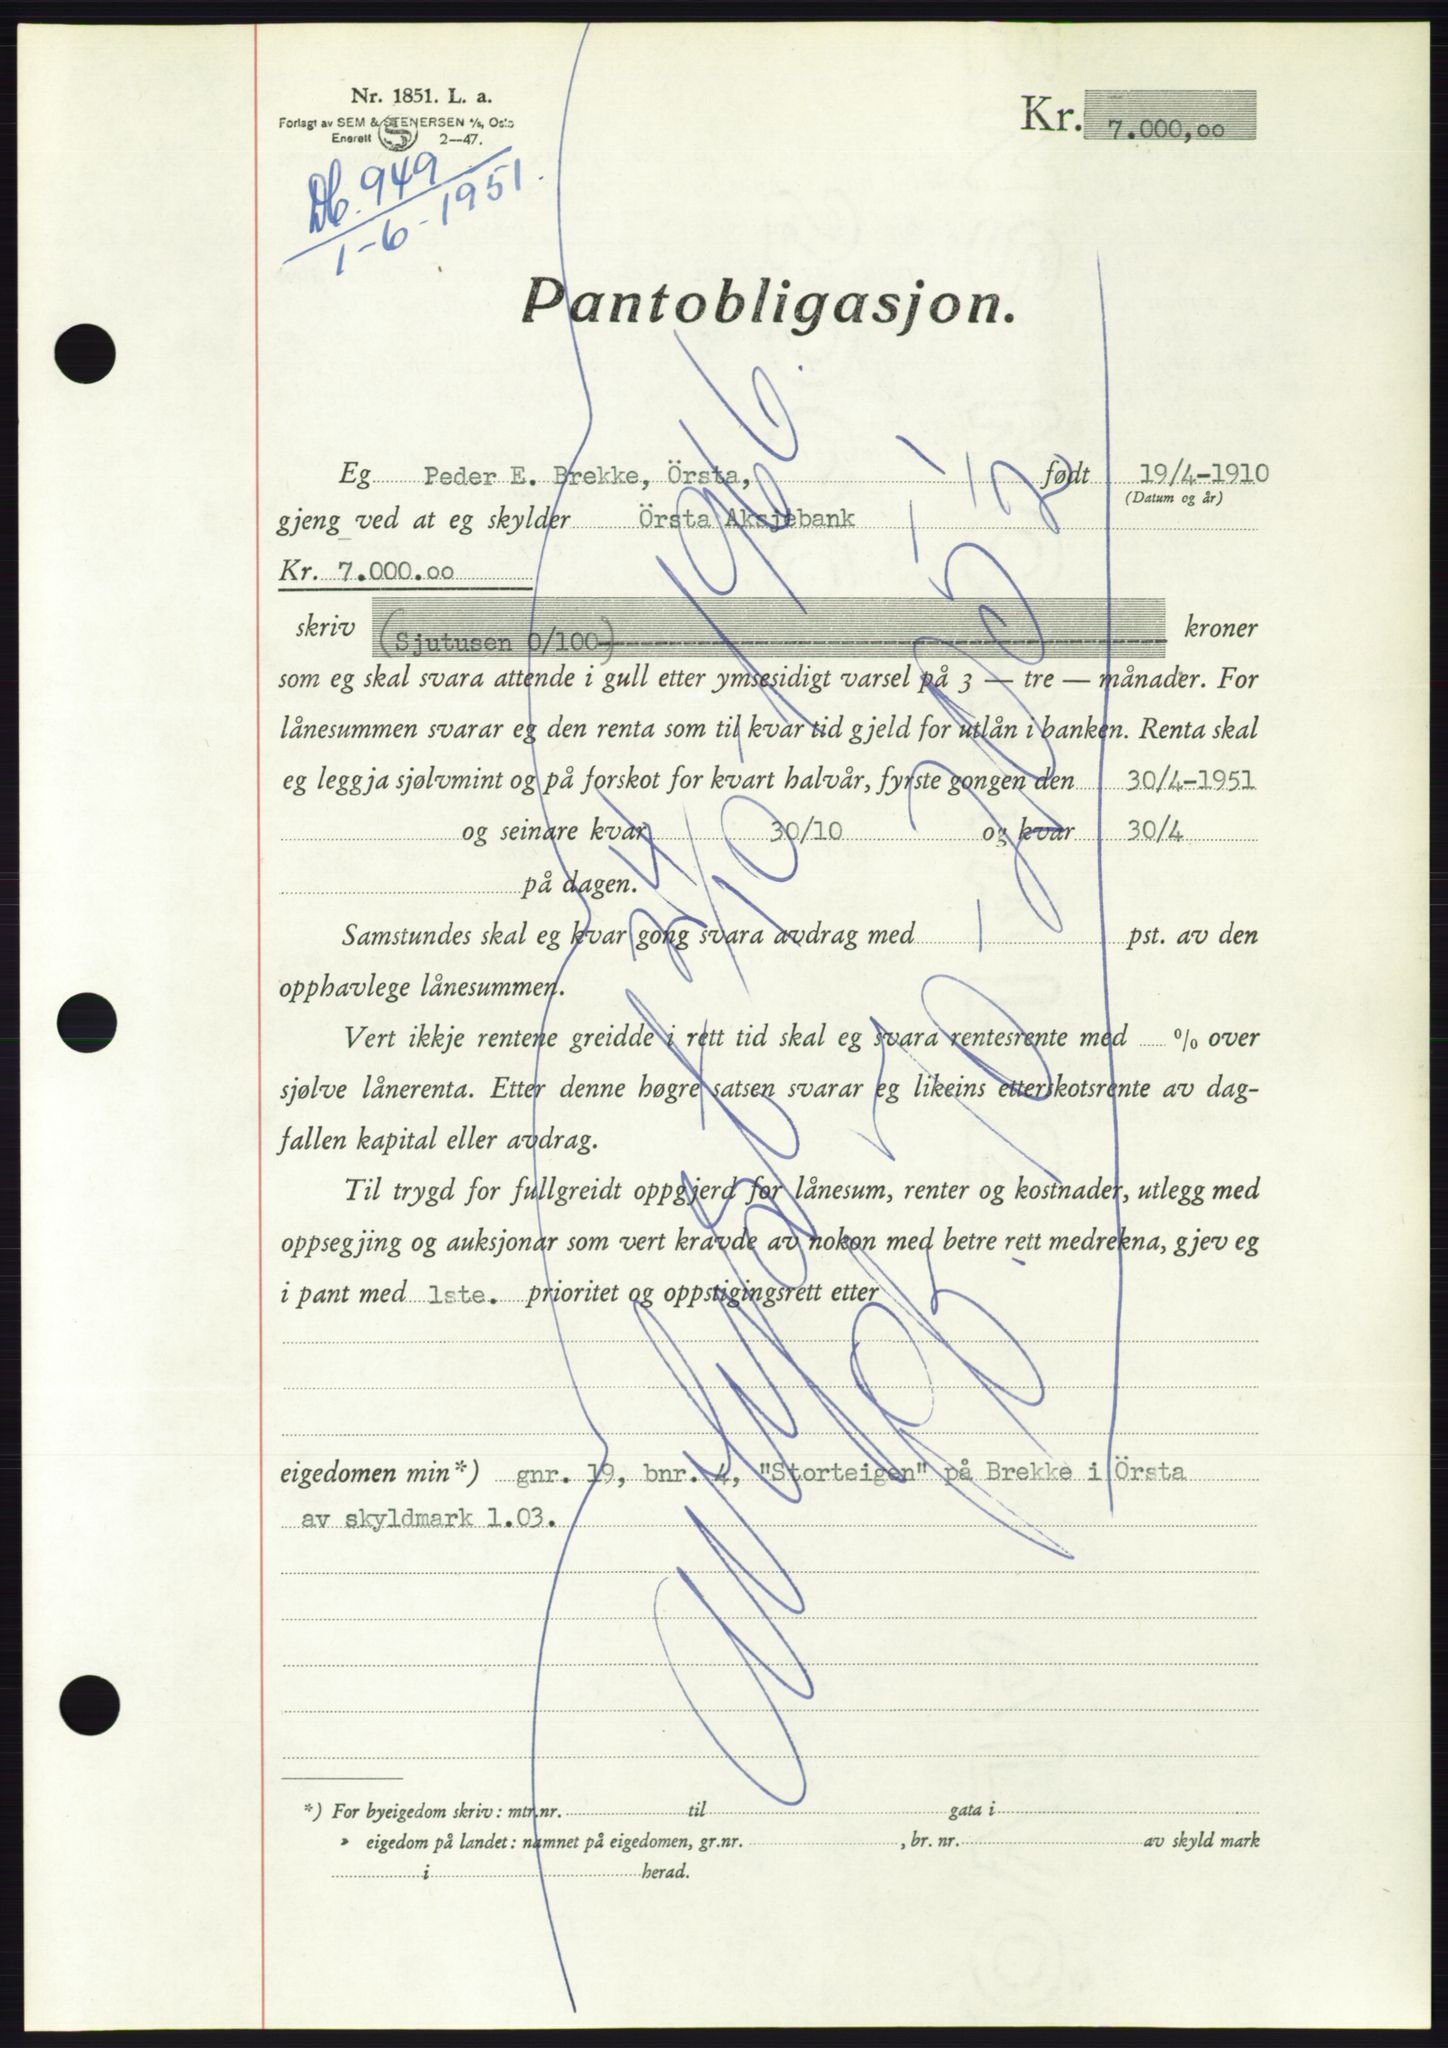 Nr. 1851. L. a.
Forlagt av SEM & STENERSEN A/S, Oslo
Enerett 2—47.
Kr. 7.000,00
Db. 949
1-6-1951.
Pantobligasjon.
Eg Peder E. Brekke, Örsta, født 19/4-1910
(Datum og år)
gjeng ved at eg skylder Örsta Aksjebank
Kr. 7.000.00
skriv (Sjutusen 0/100) kroner
som eg skal svara attende i gull etter ymsesidigt varsel på 3 — tre — månader. For
lånesummen svarar eg den renta som til kvar tid gjeld for utlån i banken. Renta skal
eg leggja sjølvmint og på forskot for kvart halvår, fyrste gongen den 30/4-1951
og seinare kvar 30/10 og kvar 30/4
på dagen.
Samstundes skal eg kvar gong svara avdrag med pst. av den
opphavlege lånesummen.
Vert ikkje rentene greidde i rett tid skal eg svara rentesrente med % over
sjølve lånerenta. Etter denne høgre satsen svarar eg likeins etterskotsrente av dag-
fallen kapital eller avdrag.
Til trygd for fullgreidt oppgjerd for lånesum, renter og kostnader, utlegg med
oppsegjing og auksjonar som vert kravde av nokon med betre rett medrekna, gjev eg
i pant med 1ste. prioritet og oppstigingsrett etter
eigedomen min*) gnr. 19, bnr. 4, "Storteigen" på Brekke i Örsta
av skyldmark 1.03.
*) For byeigedom skriv: mtr.nr. til gata i
» eigedom på landet: namnet på eigedomen, gr.nr. , br. nr. av skyld mark
i herad.